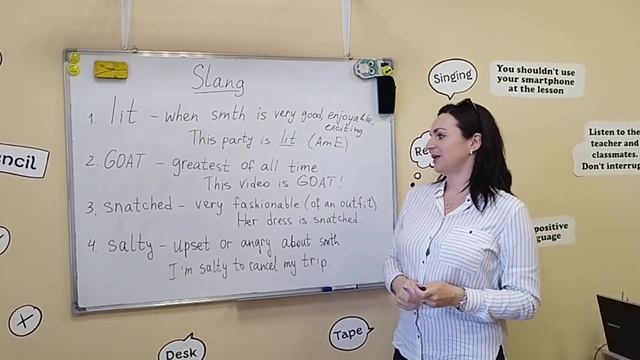 Slang
1. lit – when smth is very good, enjoyable,
exciting
This party is lit. (AmE)
2. GOAT – greatest of all time
This video is GOAT!
3. snatched – very fashionable (of an outfit)
Her dress is snatched.
4. salty – upset or angry about smth
I'm salty to cancel my trip.
Singing
You shouldn't use
your smartphone
at the lesson
Listen to the
teacher and
classmates.
Don't interrup
positive
Desk
Tape
X